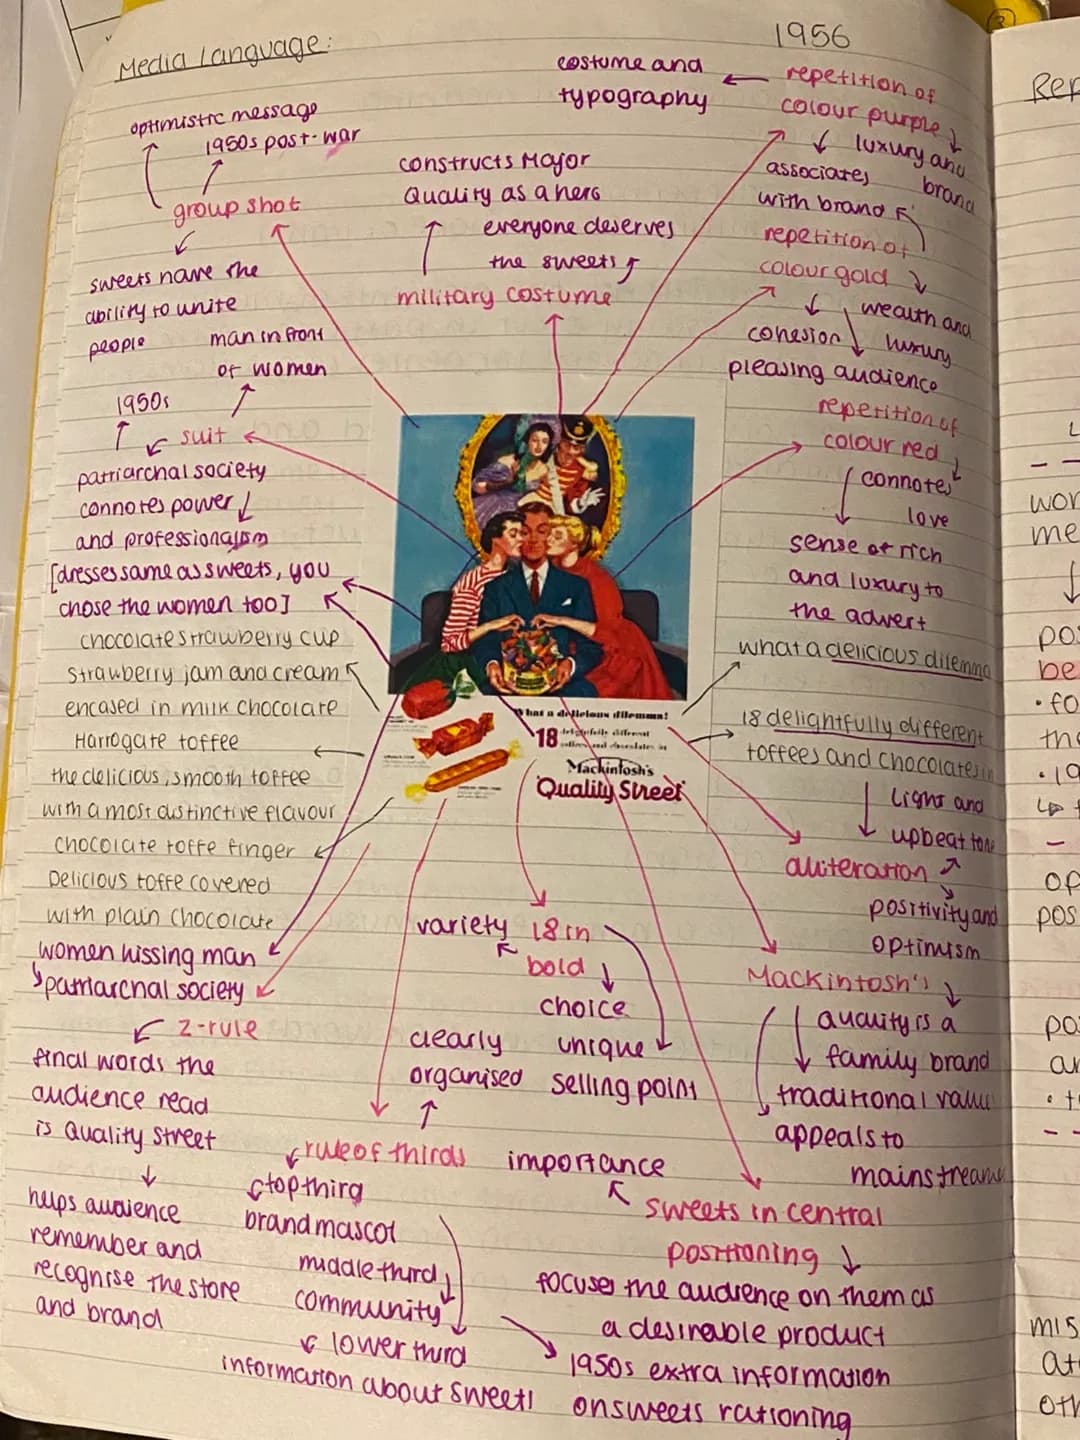 Media Language:
1956
optimistic message
1950s post-war
group shot
sweets have the
ability to unite
people
man in front
of women
1950s
suit
patriarchal society
connotes power
and professionalism
[dresses same as sweets, you
chose the women too]
chocolate strawberry cup
strawberry jam and cream
encased in milk chocolate
Harrogate toffee
the delicious, smooth toffee
with a most distinctive flavour
chocolate toffe finger
Delicious toffe covered
with plain chocolate
women kissing man
patriarchal society
z-rule
final words the
audience read
is Quality Street
helps audience
remember and
recognise the store
and brand
costume and
typography
constructs Major
Quality as a hero
everyone deserves
the sweets
military costume
repetition of
colour purple
luxury and
brand
associates
with brand
repetition of
colour gold
wealth and
luxury
cohesion
pleasing audience
repetition of
colour red
connotes
love
sense of rich
and luxury to
the advert
what a delicious dilemma
18 delightfully different
toffees and chocolates in
Light and
upbeat tone
aliteration
positivity and
optimism
What a delicious dilemma!
18 delightfully different
toffees and chocolates in
Mackintosh's
Quality Street
variety
18 in
bold
choice
unique
selling point
clearly
organised
rule of thirds
top thirg
brand mascot
middle third
community
lower third
information about sweets
1950s extra information
on sweets rationing
Mackintosh's
quality is a
family brand
traditional value
appeals to
mainstreame
importance
sweets in central
positioning
focuses the audience on them as
a desirable product
Rep
wor
me
po
be
• fo
the
• 19
op
pos
po
ar
mis
at
oth